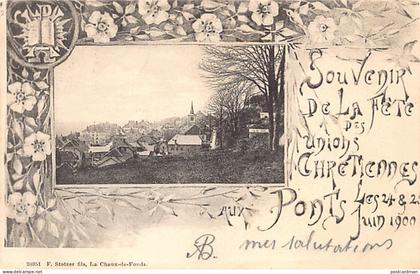 Souvenir
de la Fête
des
Unions
Chrétiennes
aux Ponts
Les 24 & 25
Juin 1900
AB mes salutations
F. Stotzer fils, La Chaux-de-Fonds.